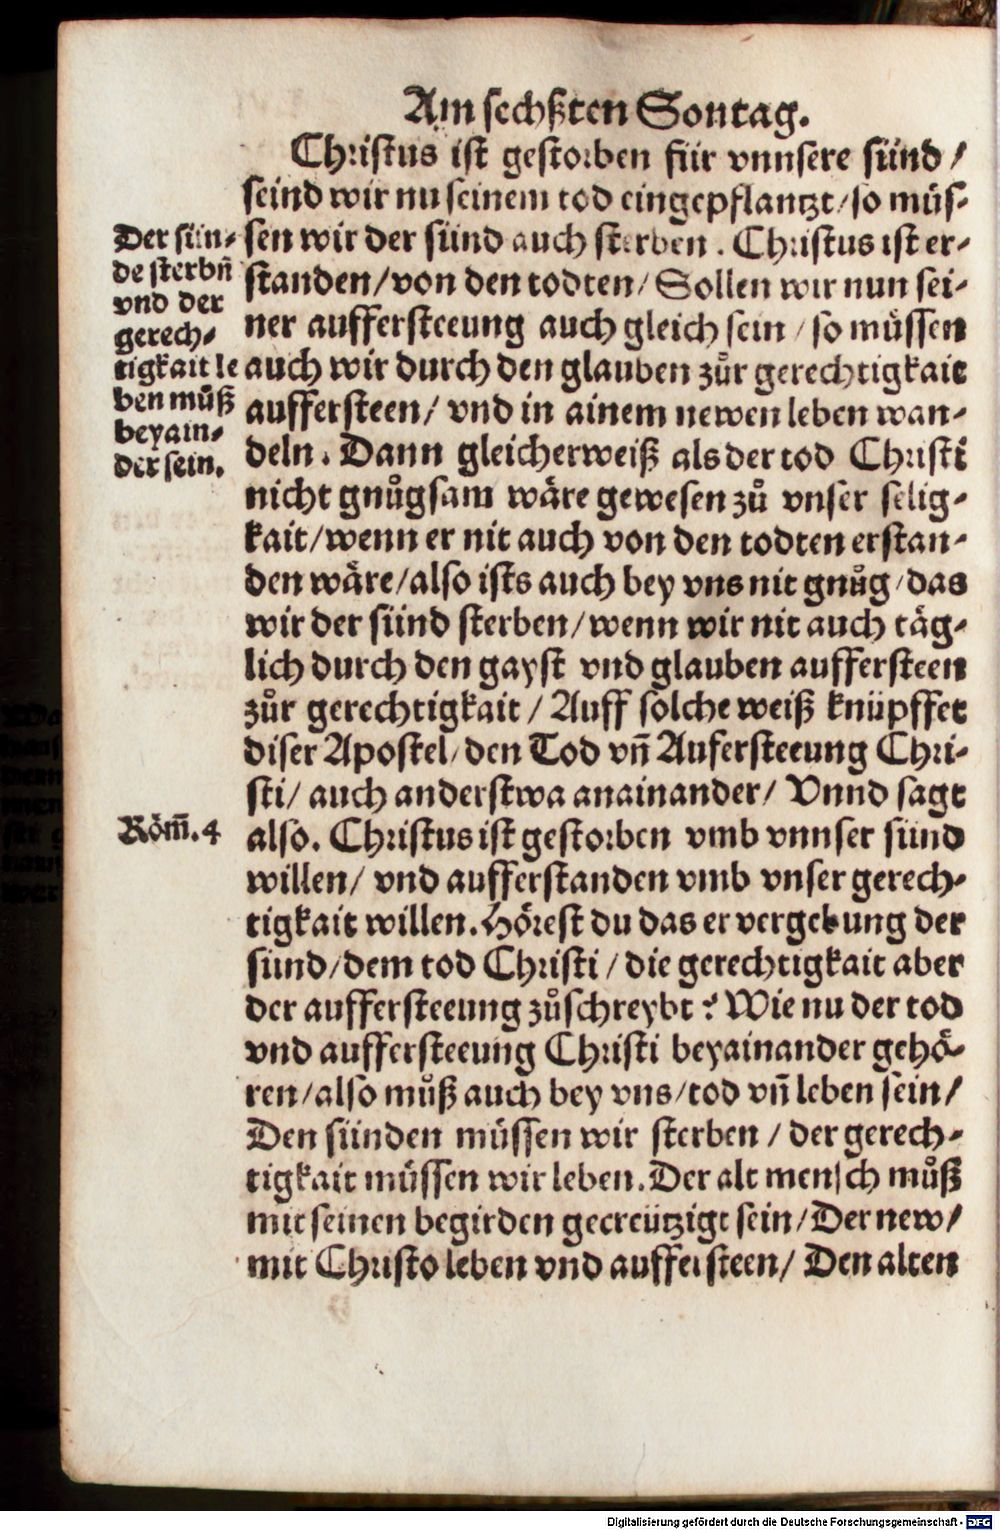 Am sechßten Sontag.
Christus ist gestorben für vnnsere sünd /
seind wir nu seinem tod eingepflantzt / so müs-
sen wir der sünd auch sterben . Christus ist er-
standen / von den todten / Sollen wir nun sei-
ner auffersteeung auch gleich sein / so müssen
auch wir durch den glauben zůr gerechtigkait
auffersteen / vnd in ainem newen leben wan-
deln . Dann gleicherweiß als der tod Christi
nicht gnůgsam wäre gewesen zů vnser selig-
kait / wenn er nit auch von den todten erstan-
den wäre / also ists auch bey vns nit gnůg / das
wir der sünd sterben / wenn wir nit auch täg-
lich durch den gayst vnd glauben auffersteen
zůr gerechtigkait / Auff solche weiß knüpffet
diser Apostel / den Tod vñ Aufersteeung Chri-
sti / auch anderstwa anainander / Vnnd sagt
also. Christus ist gestorben vmb vnnser sünd
willen / vnd aufferstanden vmb vnser gerech-
tigkait willen. Hörest du das er vergebung der
sünd / dem tod Christi / die gerechtigkait aber
der auffersteeung zůschreybt ? Wie nu der tod
vnd auffersteeung Christi beyainander gehö-
ren / also můß auch bey vns / tod vñ leben sein /
Den sünden müssen wir sterben / der gerech-
tigkait müssen wir leben. Der alt mensch můß
mit seinen begirden gecreützigt sein / Der new /
mit Christo leben vnd auffersteen / Den alten
Der sün-
de sterbñ
vnd der
gerech-
tigkait le
ben můß
beyain-
der sein.
Röm̃. 4
Digitalisierung gefördert durch die Deutsche Forschungsgemeinschaft - DFG